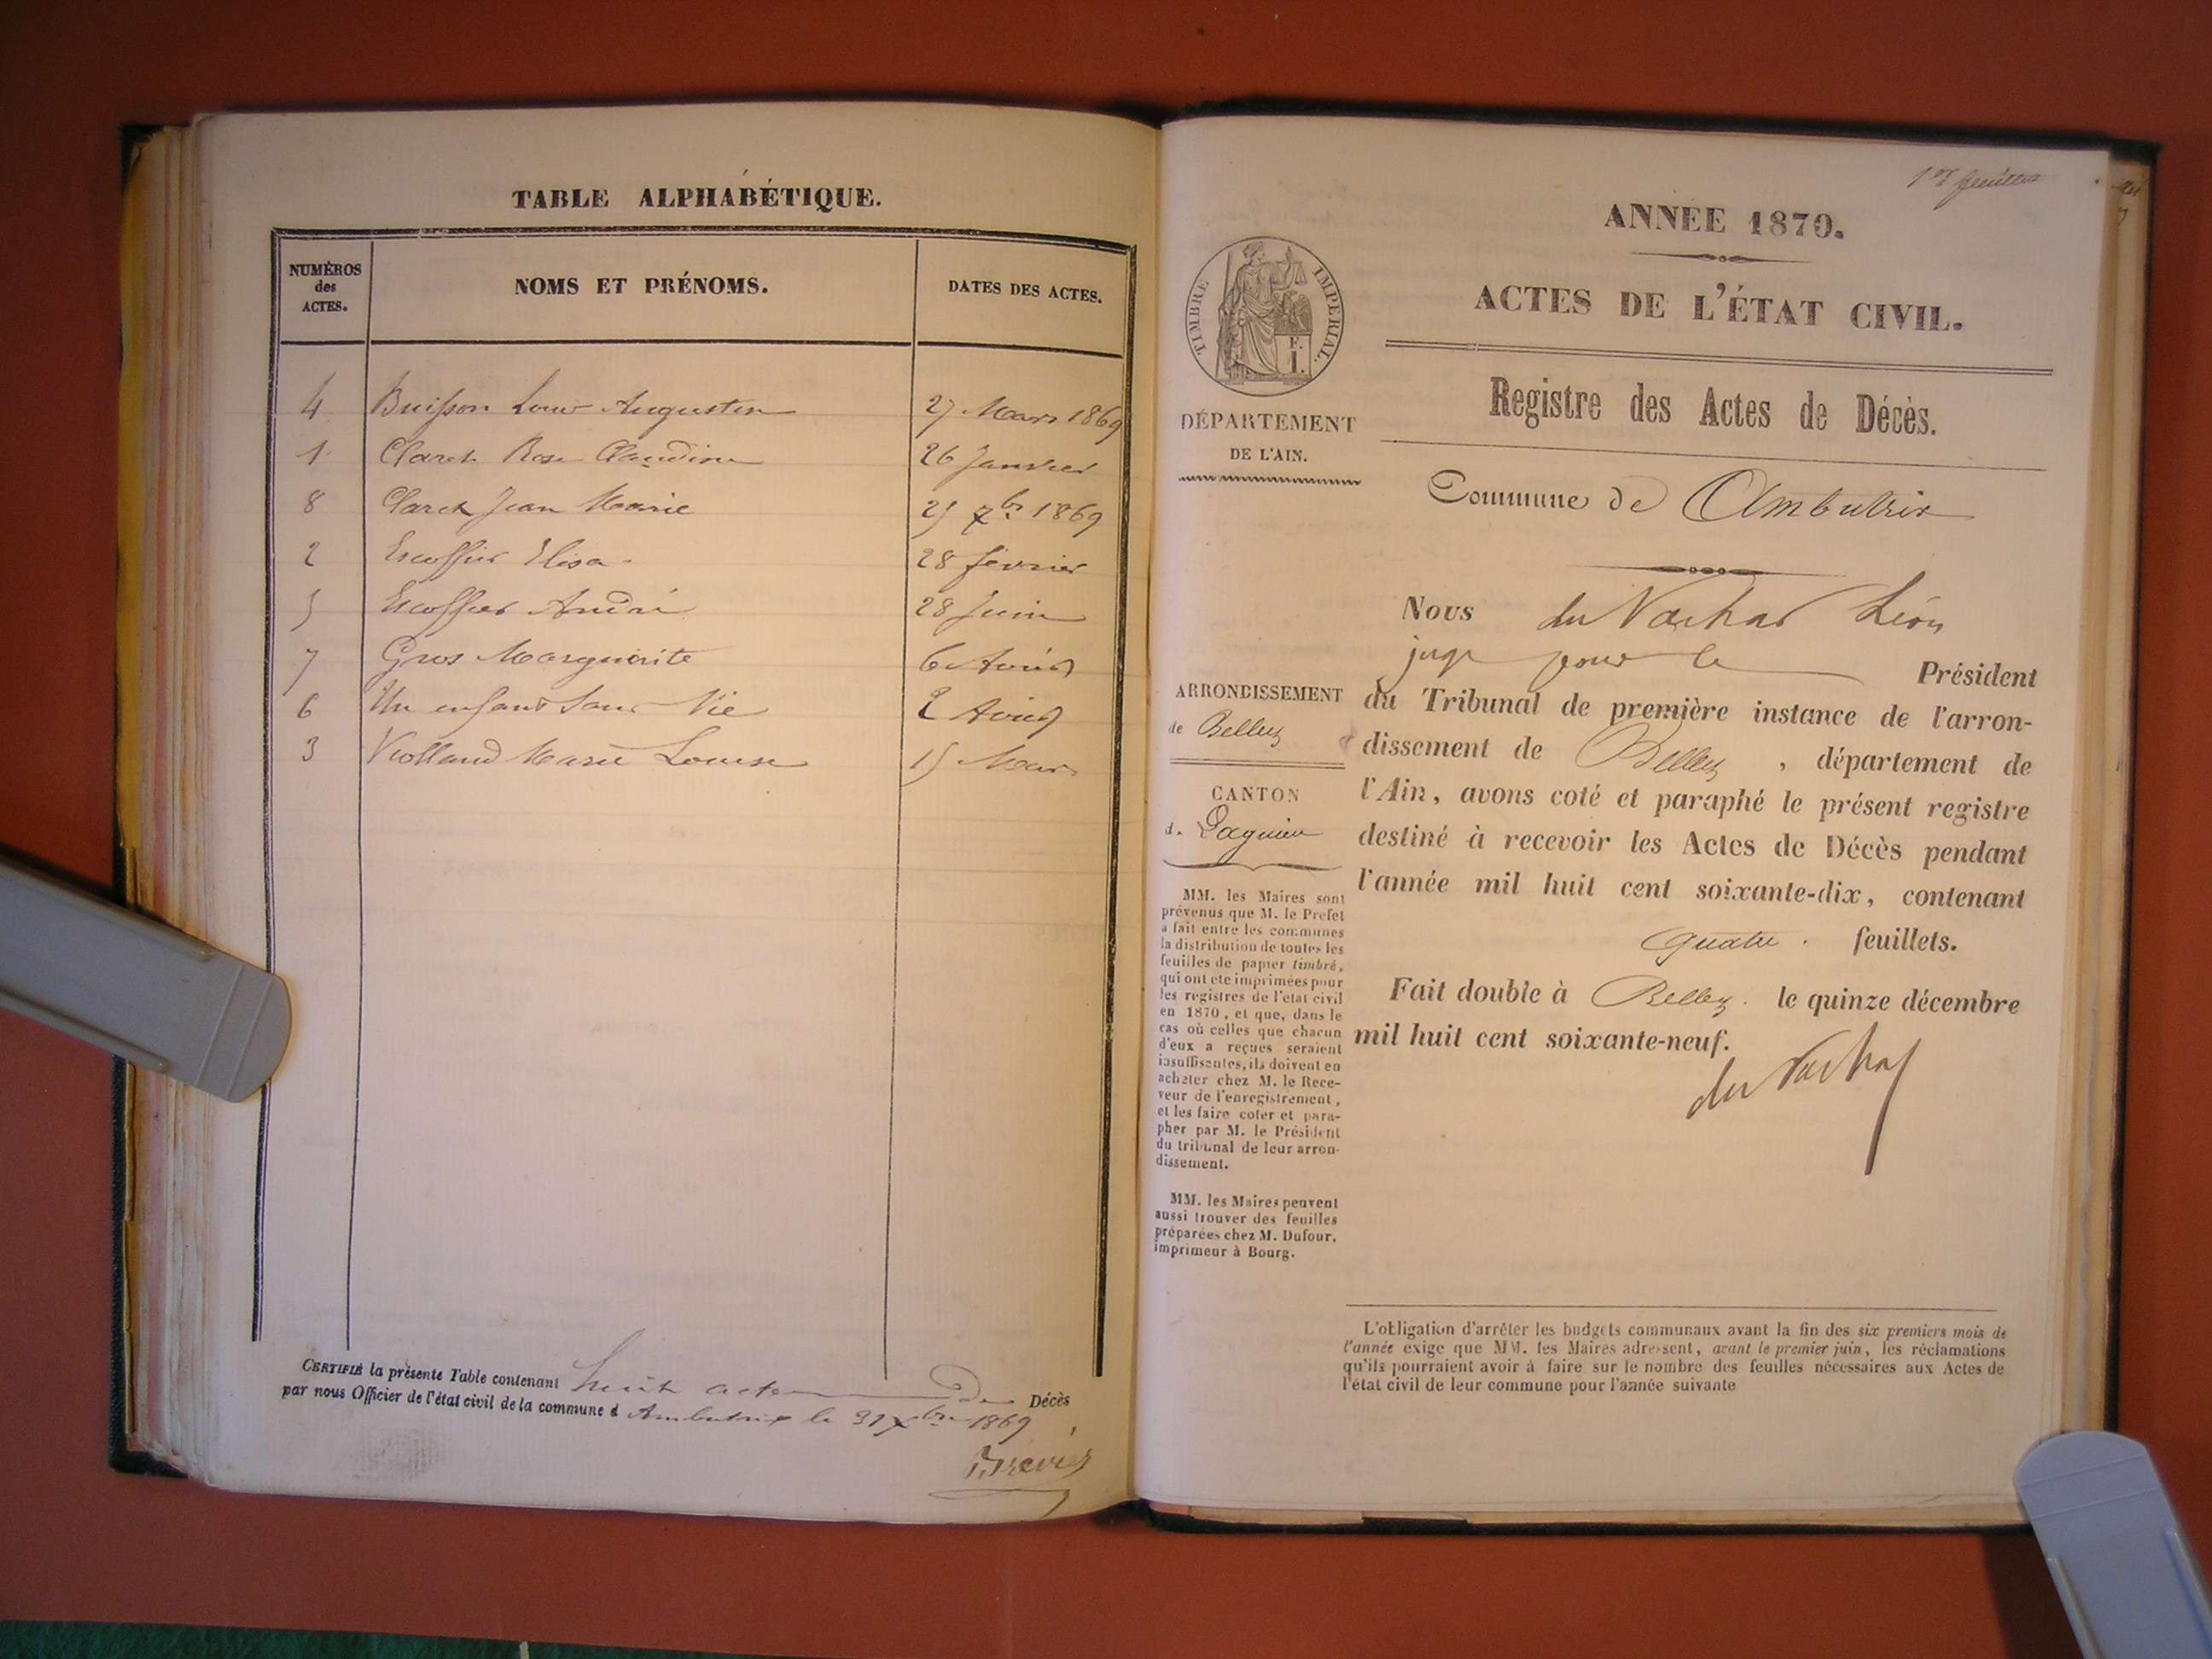 TABLE ALPHABÉTIQUE.
NUMÉROS des ACTES. NOMS ET PRÉNOMS. DATES DES ACTES.
4 Buisson Louis Augustin 27 Mars 1869
1 Claret Rose Claudine 26 Janvier
8 Claret Jean Marie 25 xbre 1869
2 Escoffier Elisa 28 février
5 Escoffier André 28 Juin
7 Gros Marguerite 6 Août
6 Un enfant Sans Vie 2 Août
3 Violland Marie Louise 15 Mars
CERTIFIÉ la présente Table contenant huit actes de Décès
par nous Officier de l'état civil de la commune d Ambutrix le 31 xbre 1869
1er feuillet
ANNÉE 1870.
ACTES DE L'ÉTAT CIVIL.
Registre des Actes de Décès.
Commune de Ambutrix
TIMBRE IMPÉRIAL.
F.
1.
DÉPARTEMENT
DE L'AIN.
ARRONDISSEMENT
de Belley
CANTON
de Lagnieu
MM. les Maires sont
prévenus que M. le Prefet
a fait entre les communes
la distribution de toutes les
feuilles de papier timbré,
qui ont été imprimées pour
les registres de l'état civil
en 1870, et que, dans le
cas où celles que chacun
d'eux a reçues seraient
insuffisantes, ils doivent en
acheter chez M. le Rece-
veur de l'enregistrement,
et les faire coter et para-
pher par M. le Président
du tribunal de leur arron-
dissement.
MM. les Maires peuvent
aussi trouver des feuilles
préparées chez M. Dufour,
imprimeur à Bourg.
NOUS du Vachat Léon
juge pour le Président
du Tribunal de première instance de l'arron-
dissement de Belley, département de
l'Ain, avons coté et paraphé le présent registre
destiné à recevoir les Actes de Décès pendant
l'année mil huit cent soixante-dix, contenant
quatre feuillets.
Fait double à Belley. le quinze décembre
mil huit cent soixante-neuf.
du Vachat
L'obligation d'arrêter les budgets communaux avant la fin des six premiers mois de
l'année exige que MM. les Maires adressent, avant le premier juin, les réclamations
qu'ils pourraient avoir à faire sur le nombre des feuilles nécessaires aux Actes de
l'état civil de leur commune pour l'année suivante